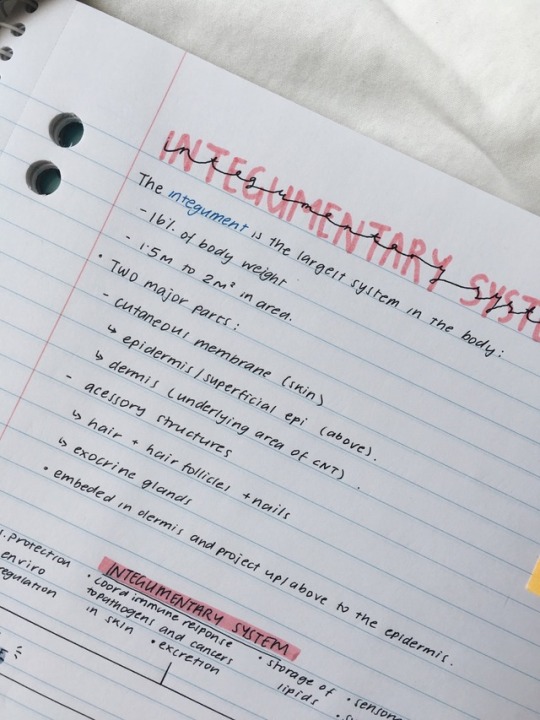 INTEGUMENTARY SYSTE
integumentary syste
The integument is the largest system in the body:
- 16% of body weight
- 1.5M to 2M² in area.
• TWO major parts:
- cutaneous membrane (skin)
↳ epidermis/superficial epi (above).
↳ dermis (underlying area of CNT).
- acessory structures
↳ hair + hair follicles + nails
↳ exocrine glands
• embeded in dermis and project up/above to the epidermis.
INTEGUMENTARY SYSTEM
protection
enviro
regulation
• coord immune response
to pathogens and cancers
in skin
• excretion
• storage of
lipids
• senson